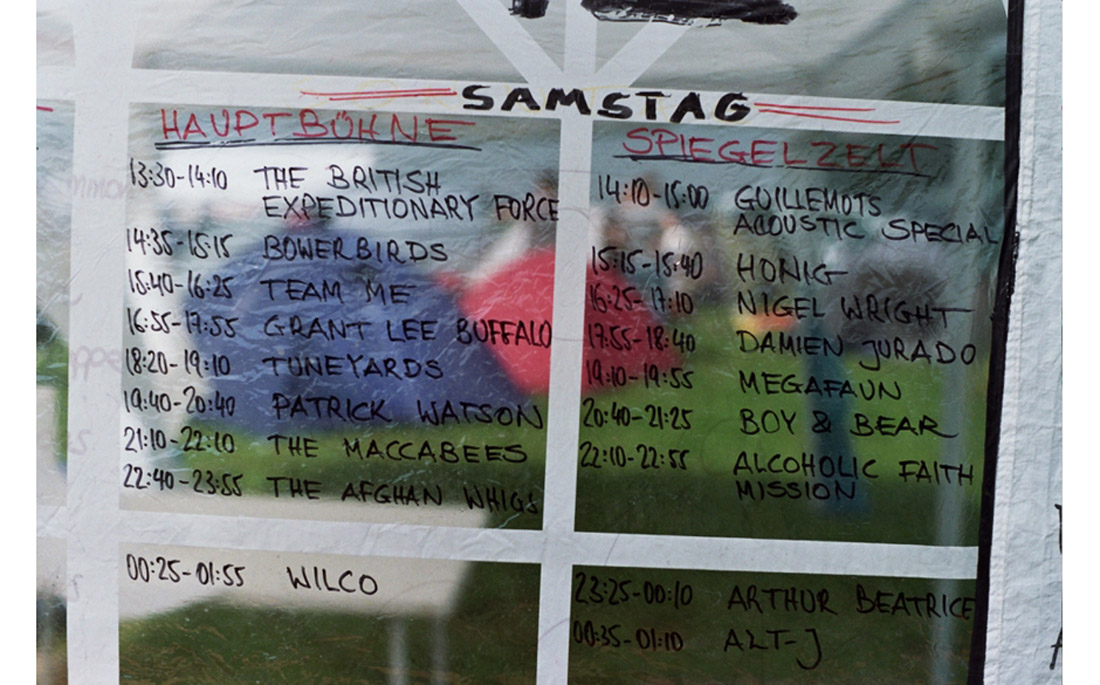 SAMSTAG
HAUPTBÜHNE
13:30-14:10 THE BRITISH
EXPEDITIONARY FORCE
14:35-15:15 BOWERBIRDS
15:40-16:25 TEAM ME
16:55-17:55 GRANT LEE BUFFALO
18:20-19:10 TUNEYARDS
19:40-20:40 PATRICK WATSON
21:10-22:10 THE MACCABEES
22:40-23:55 THE AFGHAN WHIGS
00:25-01:55 WILCO
SPIEGELZELT
14:10-15:00 GUILLEMOTS
ACOUSTIC SPECIAL
15:15-15:40 HONIG
16:25-17:10 NIGEL WRIGHT
17:55-18:40 DAMIEN JURADO
19:10-19:55 MEGAFAUN
20:40-21:25 BOY & BEAR
22:10-22:55 ALCOHOLIC FAITH
MISSION
23:25-00:10 ARTHUR BEATRICE
00:35-01:10 ALT-J